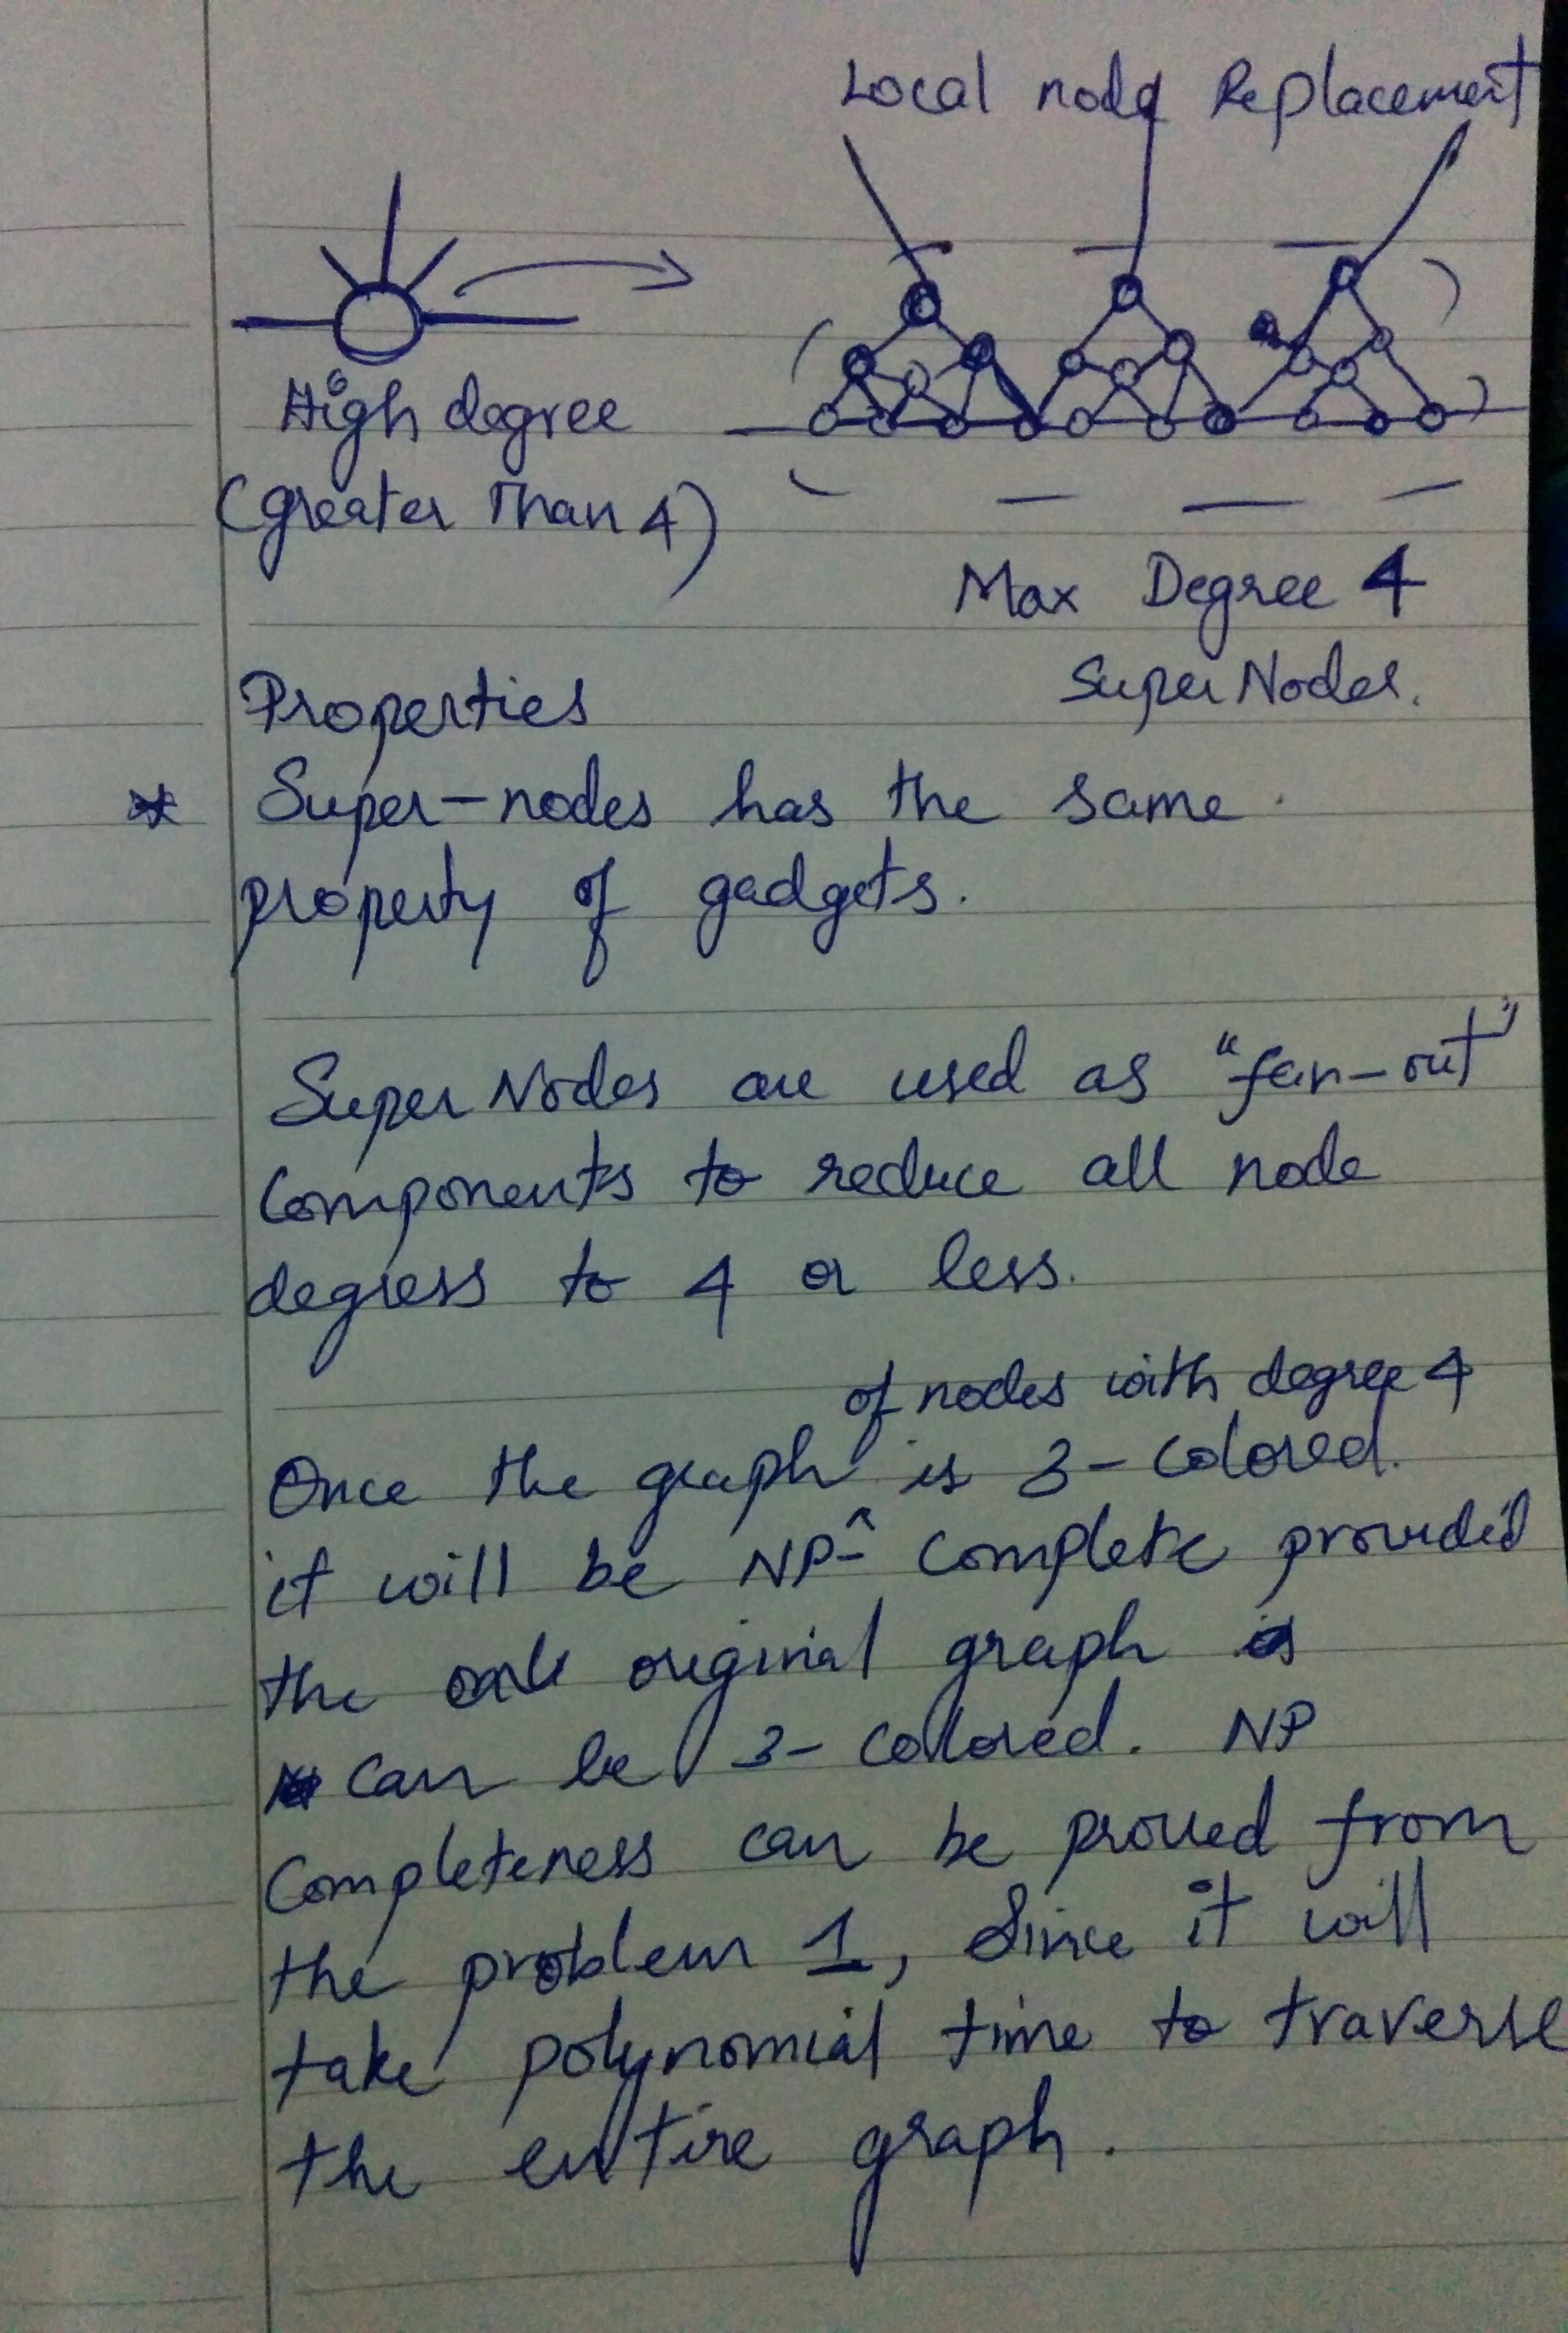 Local node Replacement
High degree
(greater Than 4)
Max Degree 4
Super Nodes.
Properties
* Super-nodes has the same
property of gadgets.
Super Nodes are used as "fan-out"
Components to reduce all node
degress to 4 or less.
of nodes with degree 4
Once the graph is 3-colored.
it will be NP-^ Complete provided
the original graph is
can be 3-colored. NP
Completeness can be proved from
the problem 1, Since it will
take polynomial time to traverse
the entire graph.